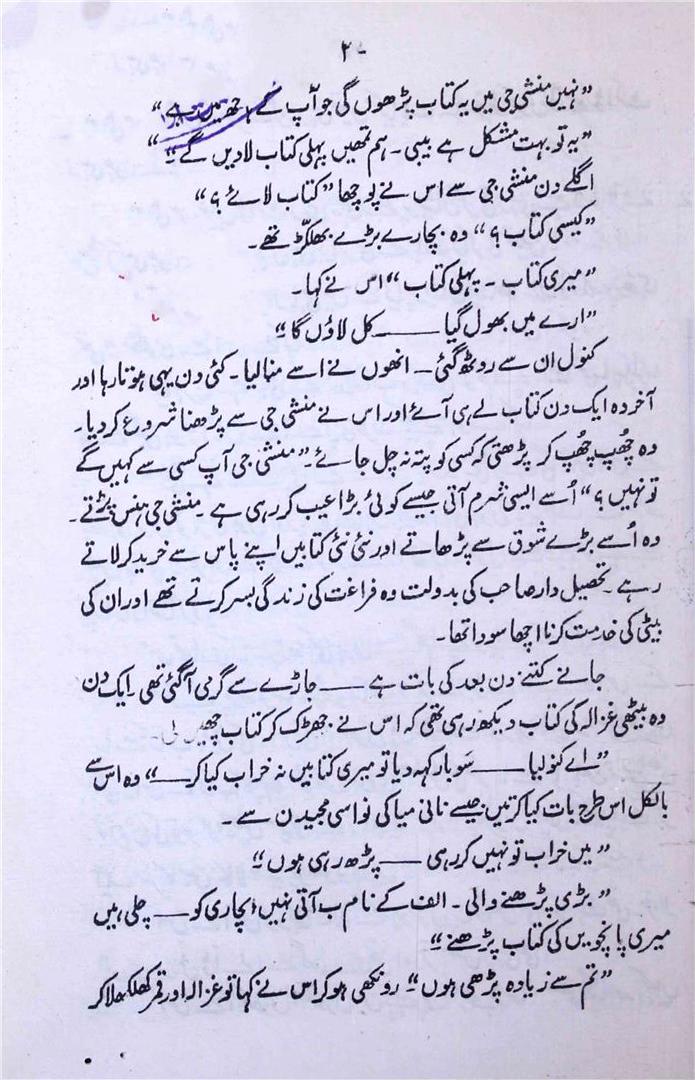 ۲۰
”نہیں منشی جی میں یہ کتاب پڑھوں گی جو آپ کے
”یہ تو بہت مشکل ہے بیبی۔ ہم تمھیں پہلی کتاب لادیں گے۔“
اگلے دن منشی جی سے اس نے پوچھا ”کتاب لائے؟“
”کیسی کتاب؟“ وہ بچارے بڑے بھلکڑ تھے۔
”میری کتاب۔ پہلی کتاب“ اس نے کہا۔
”ارے میں بھول گیا ــــــ کل لاؤں گا“
کنول ان سے روٹھ گئی۔ انھوں نے اسے منالیا۔ کئی دن یہی ہوتا رہا اور
آخر وہ ایک دن کتاب لے ہی آئے اور اس نے منشی جی سے پڑھنا شروع کردیا۔
وہ چُھپ چُھپ کر پڑھتی کہ کسی کو پتہ نہ چل جائے۔ ”منشی جی آپ کسی سے کہیں گے
تو نہیں؟“ اُسے ایسی شرم آتی جیسے کوئی بڑا عیب کر رہی ہے۔ منشی جی ہنس پڑتے۔
وہ اُسے بڑے شوق سے پڑھاتے اور نئی نئی کتابیں اپنے پاس سے خرید کر لاتے
رہے۔ تحصیل دار صاحب کی بدولت وہ فراغت کی زندگی بسر کرتے تھے اور ان کی
بیٹی کی خدمت کرنا اچھا سودا تھا۔
جانے کتنے دن بعد کی بات ہے ــــــ جاڑے سے گرمی آگئی تھی۔ ایک دن
وہ بیٹھی غزالہ کی کتاب دیکھ رہی تھی کہ اس نے جھڑک کر کتاب چھین لی۔
”اے کنولیا ــــــ سَو بار کہہ دیا تو میری کتابیں نہ خراب کیا کر ــــــ“ وہ اس سے
بالکل اس طرح بات کیا کرتیں جیسے نانی میا کی نواسی مجیدن سے۔
”میں خراب تو نہیں کر رہی ــــــ پڑھ رہی ہوں“
”بڑی پڑھنے والی۔ الف کے نام ب آتی نہیں بچاری کو ــــــ چلی ہیں
میری پانچویں کی کتاب پڑھنے“
”تم سے زیادہ پڑھی ہوں“۔ رونکھی ہو کر اس نے کہا تو غزالہ اور قمر کھلکھلا کر